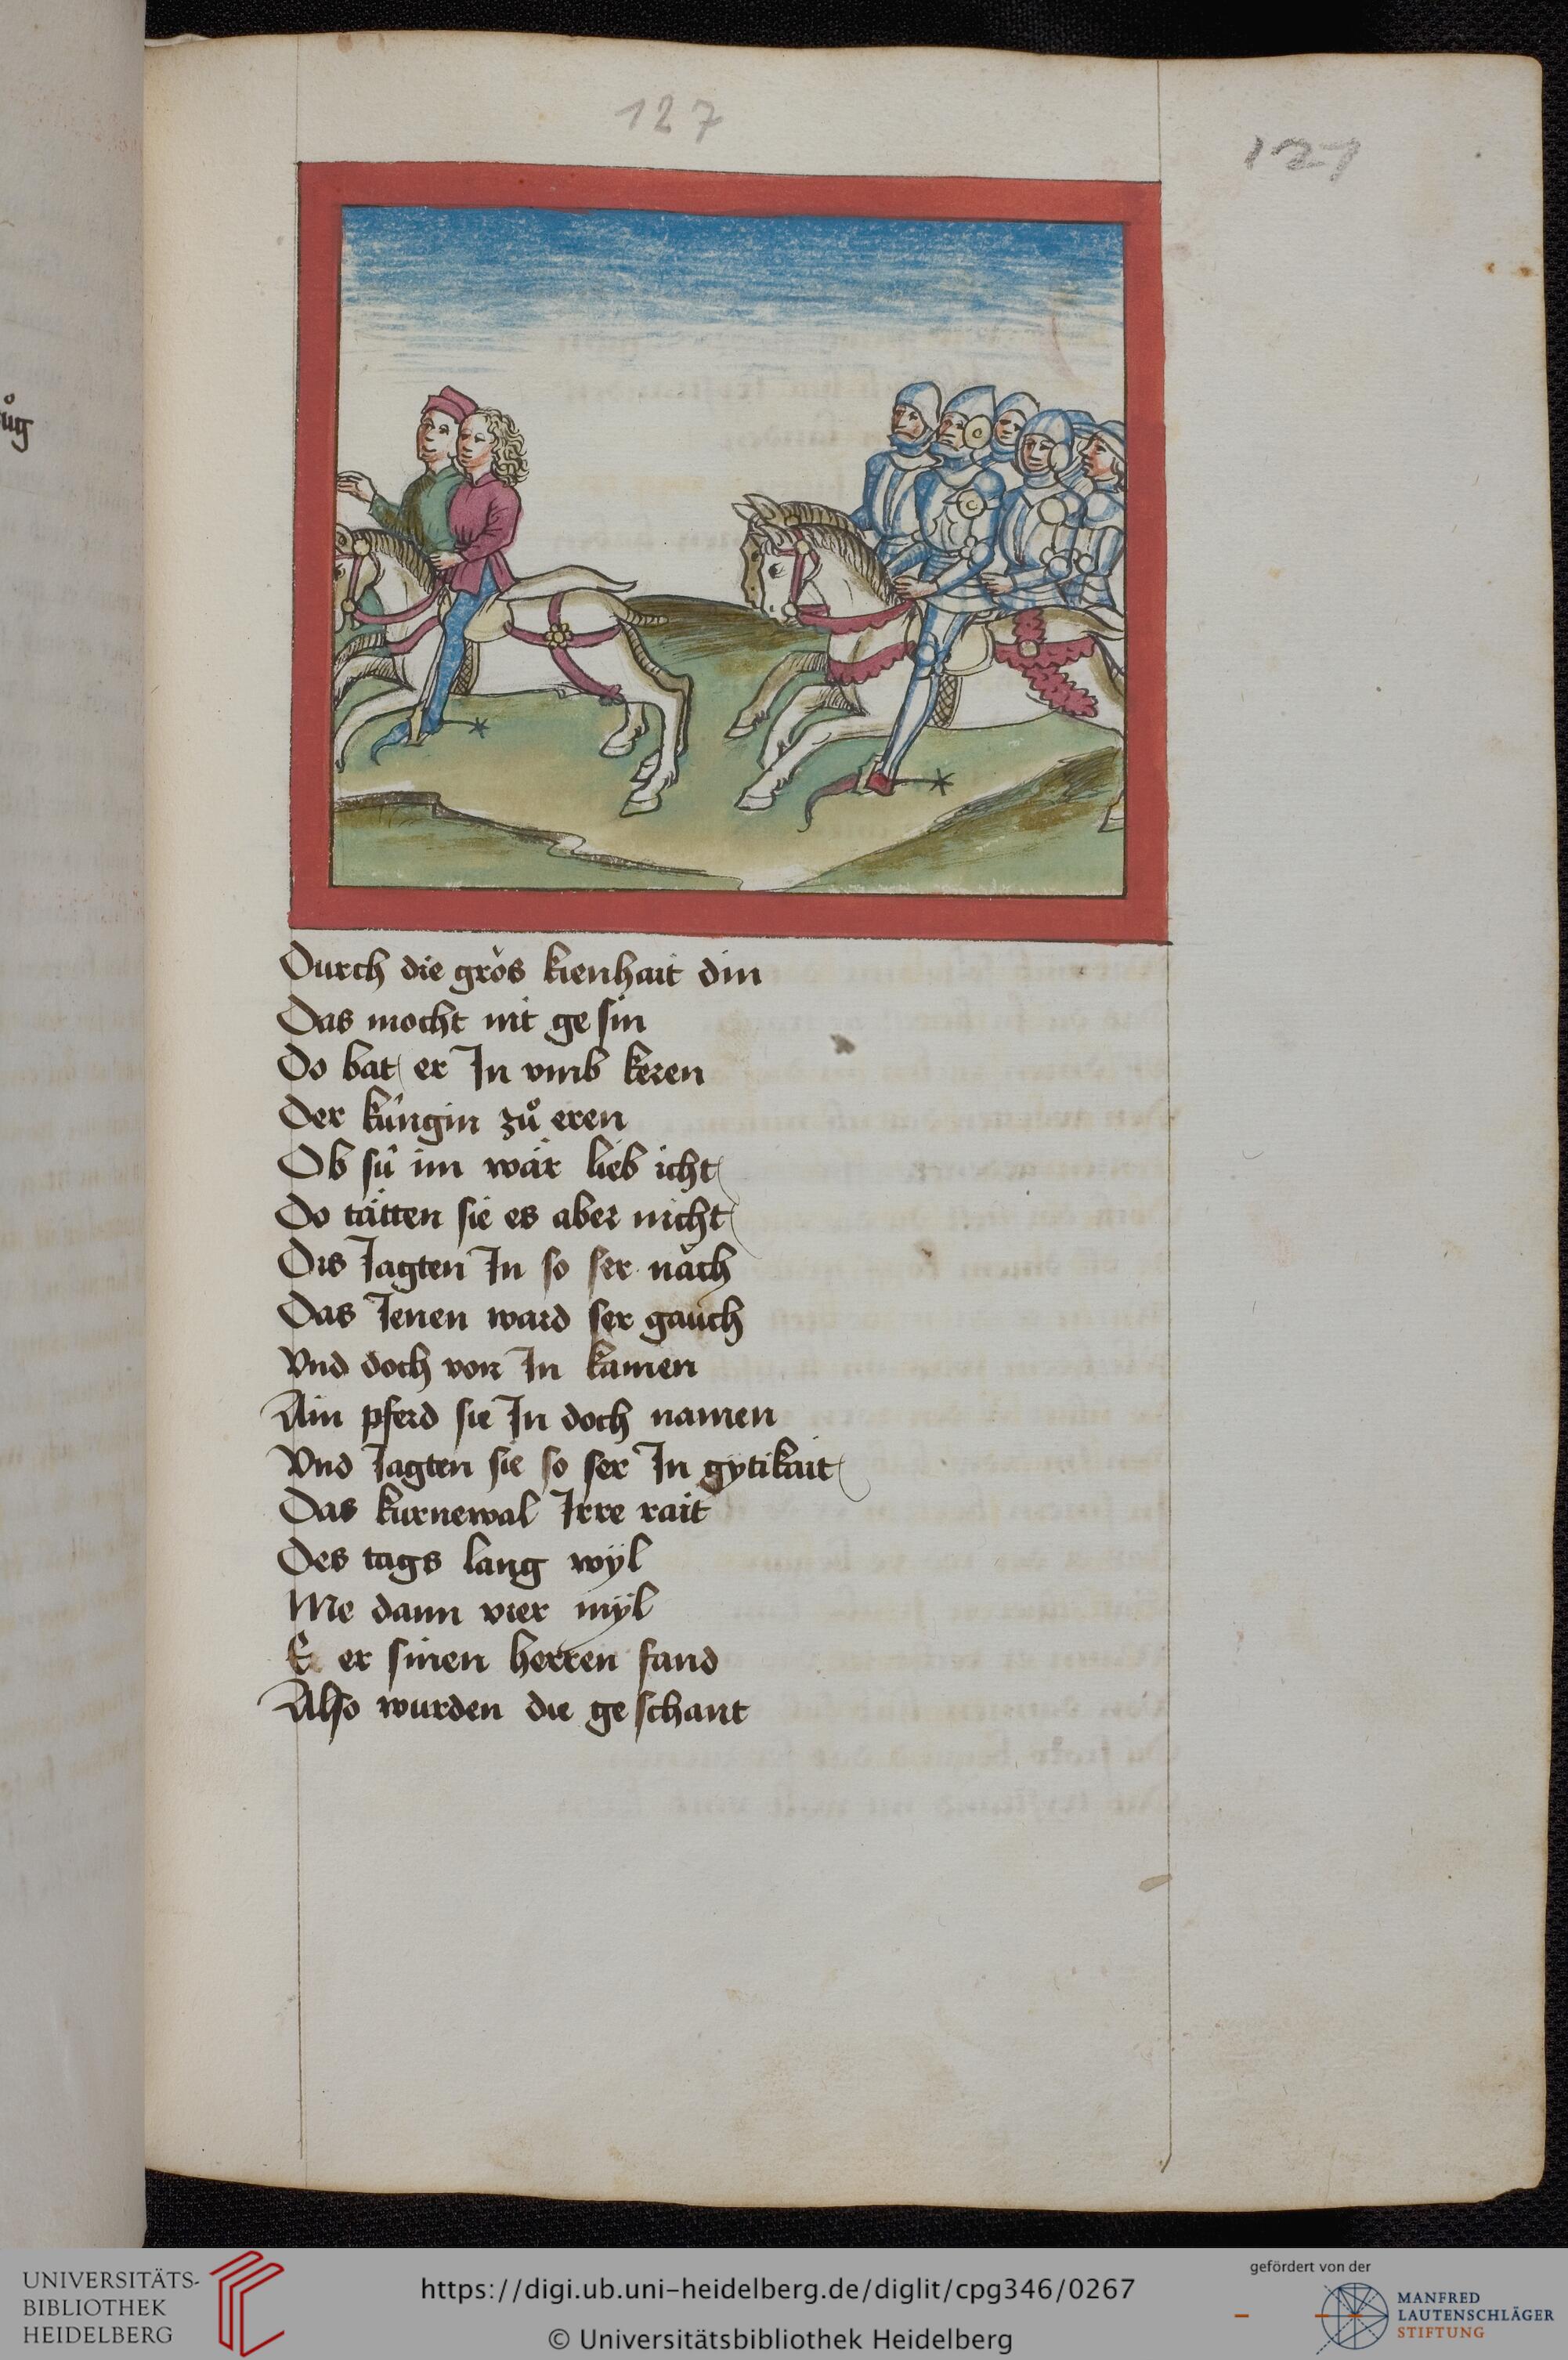 127
127
Durch die gròs kienhait din
Das mocht nit ge sin
Do bat er In vmb keren
Der kúngin zů eren
Ob sú im wär lieb icht
Do tätten sie es aber nicht
Dis Jagten In so ser nǎch
Das Jenen ward ser gauch
Vnd doch von In kamen
Ain pferd sie In doch namen
Vnd Jagten sie so ser In gÿtikait
Das kurnewal Irre rait
Des tags lang wÿl
Me dann vier mÿl
E er sinen herren fand
Also wurden die ge schant
UNIVERSITÄTS-
BIBLIOTHEK
HEIDELBERG
https://digi.ub.uni-heidelberg.de/diglit/cpg346/0267
© Universitätsbibliothek Heidelberg
gefördert von der
MANFRED
LAUTENSCHLÄGER
STIFTUNG